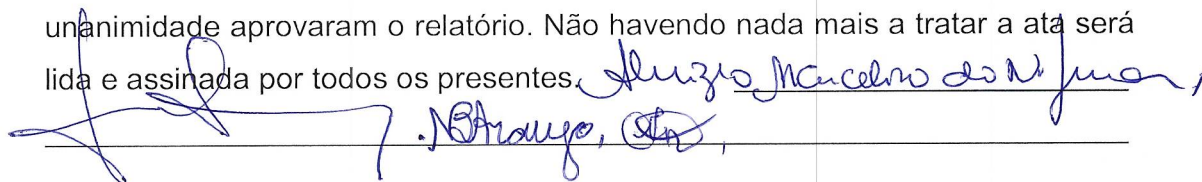 unanimidade aprovaram o relatório. Não havendo nada mais a tratar a ata será
lida e assinada por todos os presentes. Aluizio Marcelino do N.
NBAraujo,